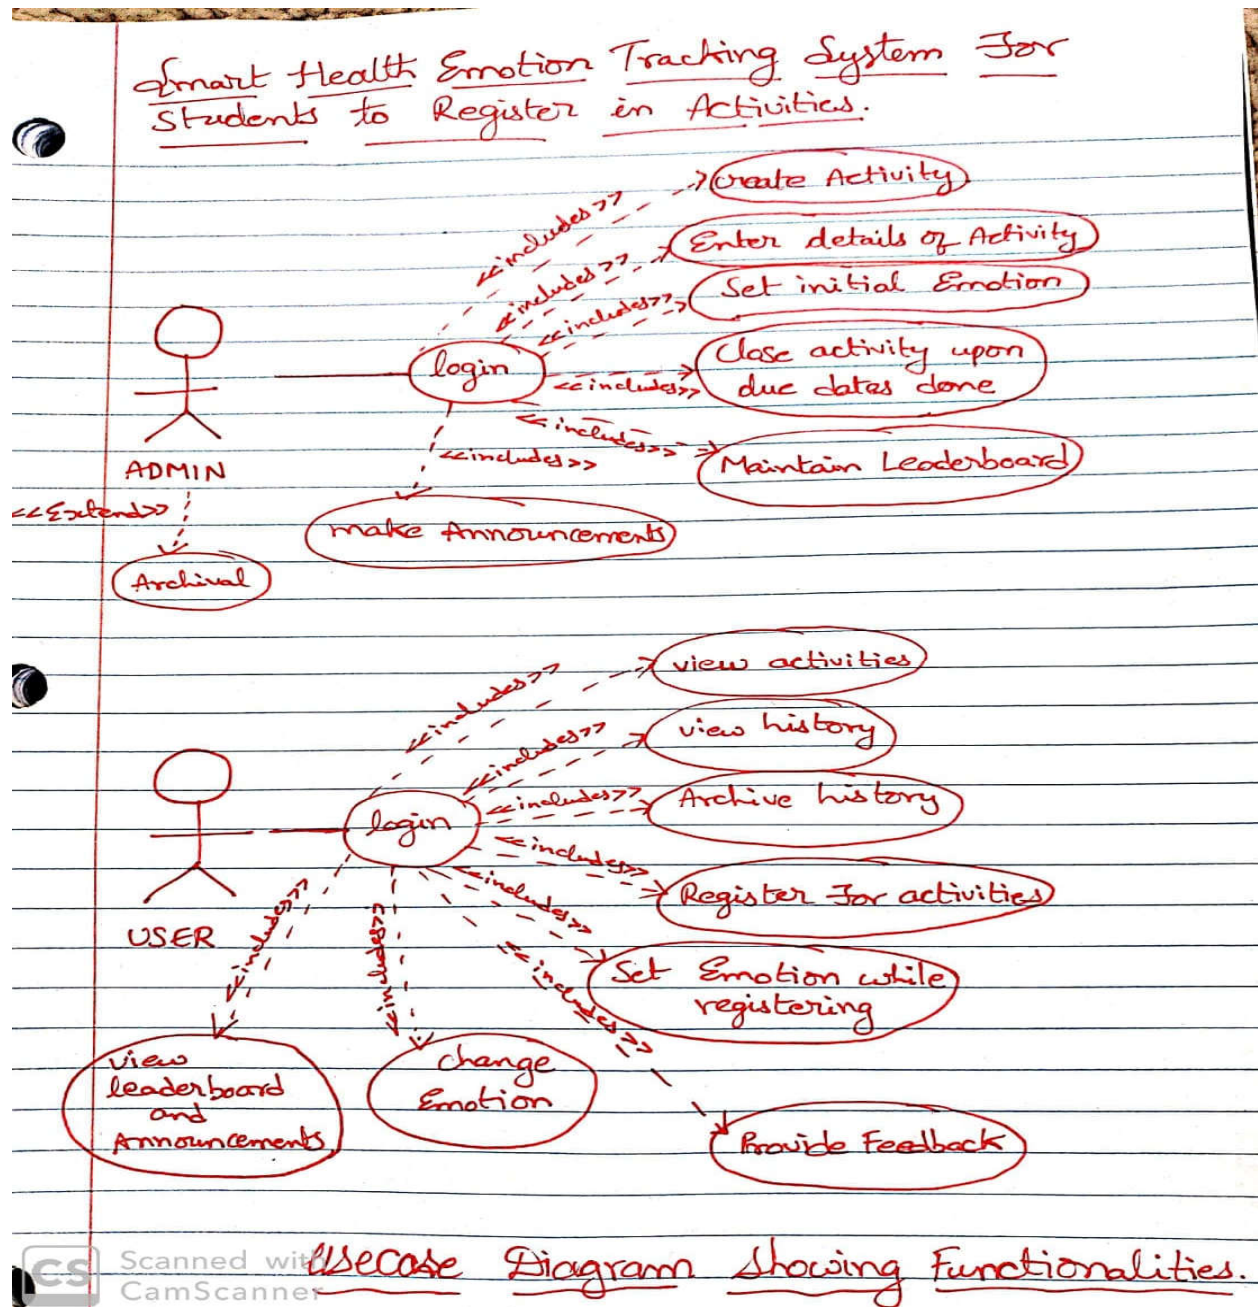 Smart Health Emotion Tracking System For
Students to Register in Activities.
<<includes>>
Create Activity
<<includes>>
Enter details of Activity
<<includes>>
Set initial Emotion
login
<<includes>>
Close activity upon
due dates done
<<includes>>
Maintain Leaderboard
<<includes>>
ADMIN
<<Extend>>
make Announcements
Archival
<<includes>>
view activities
<<includes>>
view history
<<includes>>
Archive history
login
<<includes>>
Register For activities
USER
<<includes>>
Set Emotion while
registering
<<includes>>
<<includes>>
<<includes>>
view
leaderboard
and
Announcements
change
Emotion
Provide Feedback
Usecase Diagram showing Functionalities.
CS
Scanned with
CamScanner